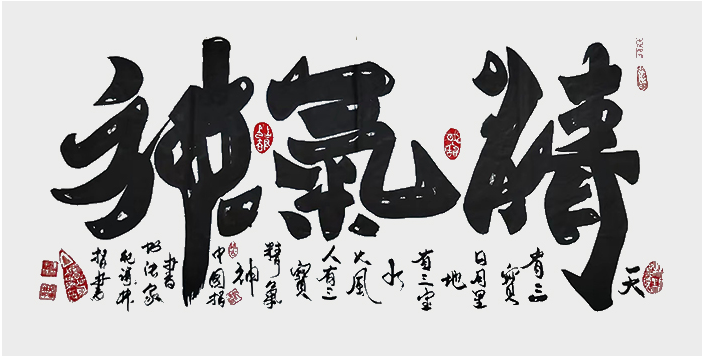 精氣神
天
有三
寶
日月星
地
有三宝
水
火風
人有三
寶
精氣
神
中國指
書
书法家
指書